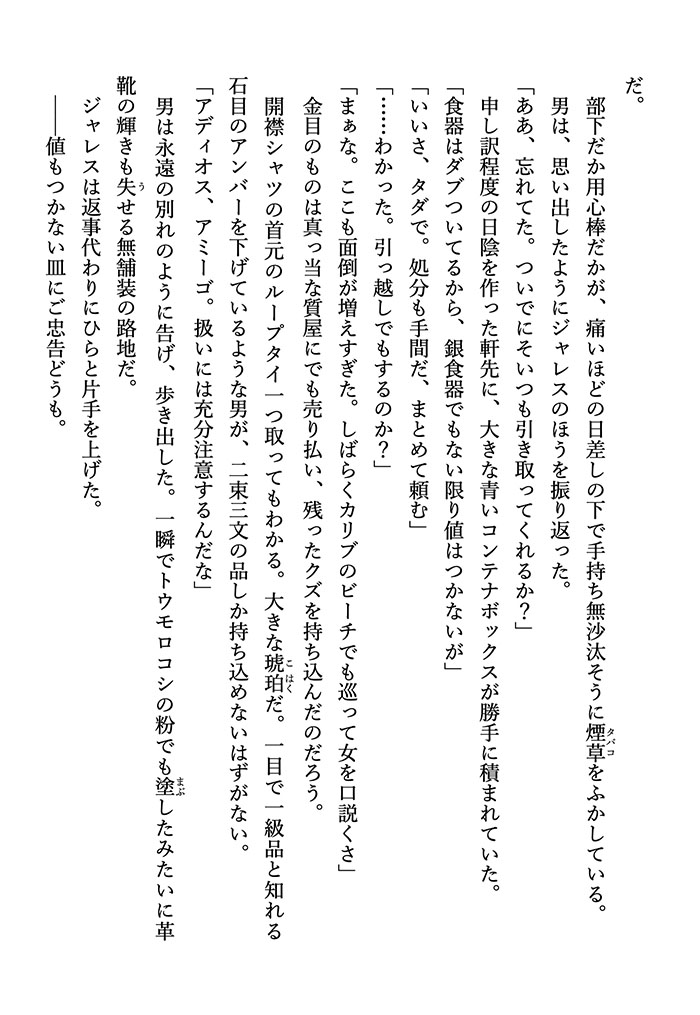 だ。
　部下だか用心棒だかが、痛いほどの日差しの下で手持ち無沙汰そうに煙草をふかしている。
　男は、思い出したようにジャレスのほうを振り返った。
「ああ、忘れてた。ついでにそいつも引き取ってくれるか？」
　申し訳程度の日陰を作った軒先に、大きな青いコンテナボックスが勝手に積まれていた。
「食器はダブついてるから、銀食器でもない限り値はつかないが」
「いいさ、タダで。処分も手間だ、まとめて頼む」
「……わかった。引っ越しでもするのか？」
「まぁな。ここも面倒が増えすぎた。しばらくカリブのビーチでも巡って女を口説くさ」
　金目のものは真っ当な質屋にでも売り払い、残ったクズを持ち込んだのだろう。
　開襟シャツの首元のループタイ一つ取ってもわかる。大きな琥珀だ。一目で一級品と知れる
石目のアンバーを下げているような男が、二束三文の品しか持ち込めないはずがない。
「アディオス、アミーゴ。扱いには充分注意するんだな」
　男は永遠の別れのように告げ、歩き出した。一瞬でトウモロコシの粉でも塗したみたいに革
靴の輝きも失せる無舗装の路地だ。
　ジャレスは返事代わりにひらと片手を上げた。
　――値もつかない皿にご忠告どうも。